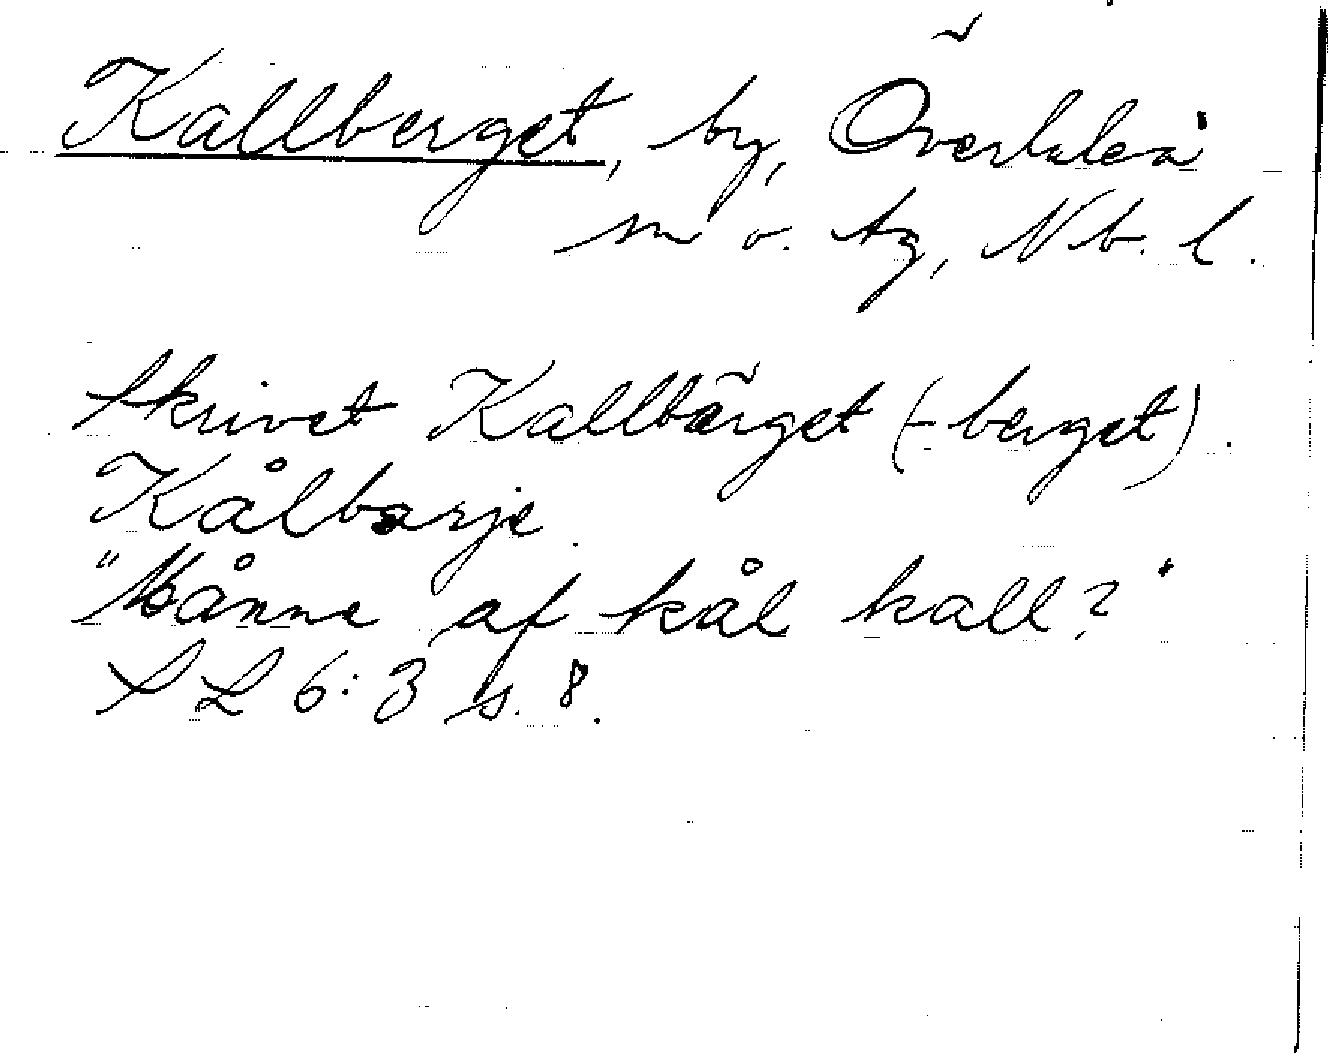 Kallberget, by, Överluleå
sn o. tg, Nb. l.
Skrivet Kallbärget (-berget).
Kålbarje.
"Månne af kål kall?"
SL 6:3 s. 8.